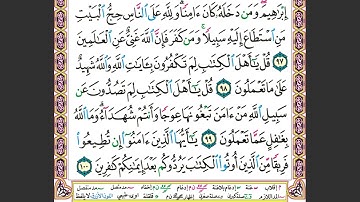 إِبْرَاهِيمَ وَمَن دَخَلَهُۥ كَانَ ءَامِنًا وَلِلَّهِ عَلَى النَّاسِ حِجُّ الْبَيْتِ
مَنِ اسْتَطَاعَ إِلَيْهِ سَبِيلًا وَمَن كَفَرَ فَإِنَّ اللَّهَ غَنِيٌّ عَنِ الْعَالَمِينَ
٩٧ قُلْ يَٰٓأَهْلَ الْكِتَٰبِ لِمَ تَكْفُرُونَ بِـَٔايَٰتِ اللَّهِ وَاللَّهُ شَهِيدٌ
عَلَىٰ مَا تَعْمَلُونَ ٩٨ قُلْ يَٰٓأَهْلَ الْكِتَٰبِ لِمَ تَصُدُّونَ عَن
سَبِيلِ اللَّهِ مَنْ ءَامَنَ تَبْغُونَهَا عِوَجًا وَأَنتُمْ شُهَدَآءُ وَمَا اللَّهُ
بِغَٰفِلٍ عَمَّا تَعْمَلُونَ ٩٩ يَٰٓأَيُّهَا الَّذِينَ ءَامَنُوٓا۟ إِن تُطِيعُوا۟
فَرِيقًا مِّنَ الَّذِينَ أُوتُوا۟ الْكِتَٰبَ يَرُدُّوكُم بَعْدَ إِيمَٰنِكُمْ كَٰفِرِينَ ١٠٠